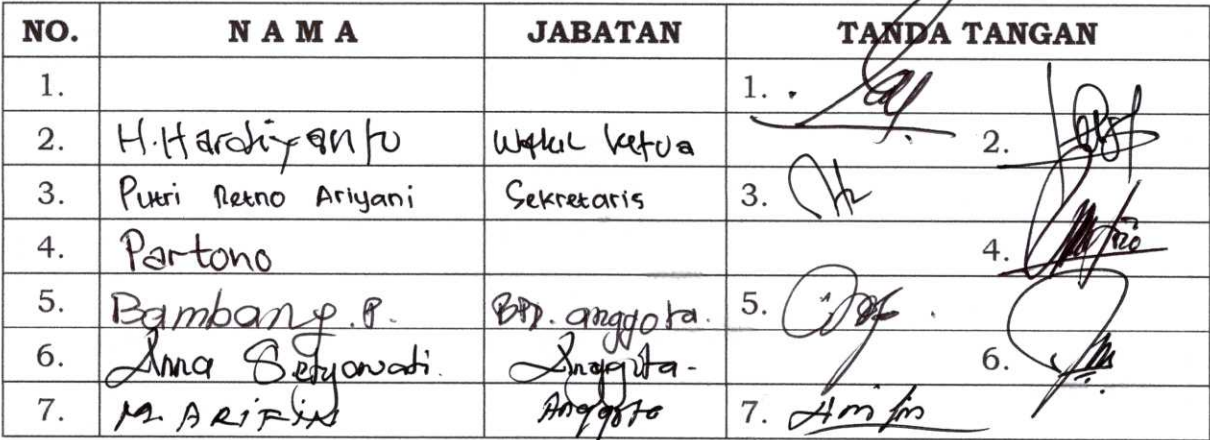 NO. NAMA JABATAN TANDA TANGAN
1. 1.
2. H. Hardiyanto Wakil Ketua 2.
3. Putri Retno Ariyani Sekretaris 3.
4. Partono 4.
5. Bambang. P. BPD. anggota. 5.
6. Anna Setyowati. Anggota- 6.
7. M. ARIFIN Anggota 7. Arifin